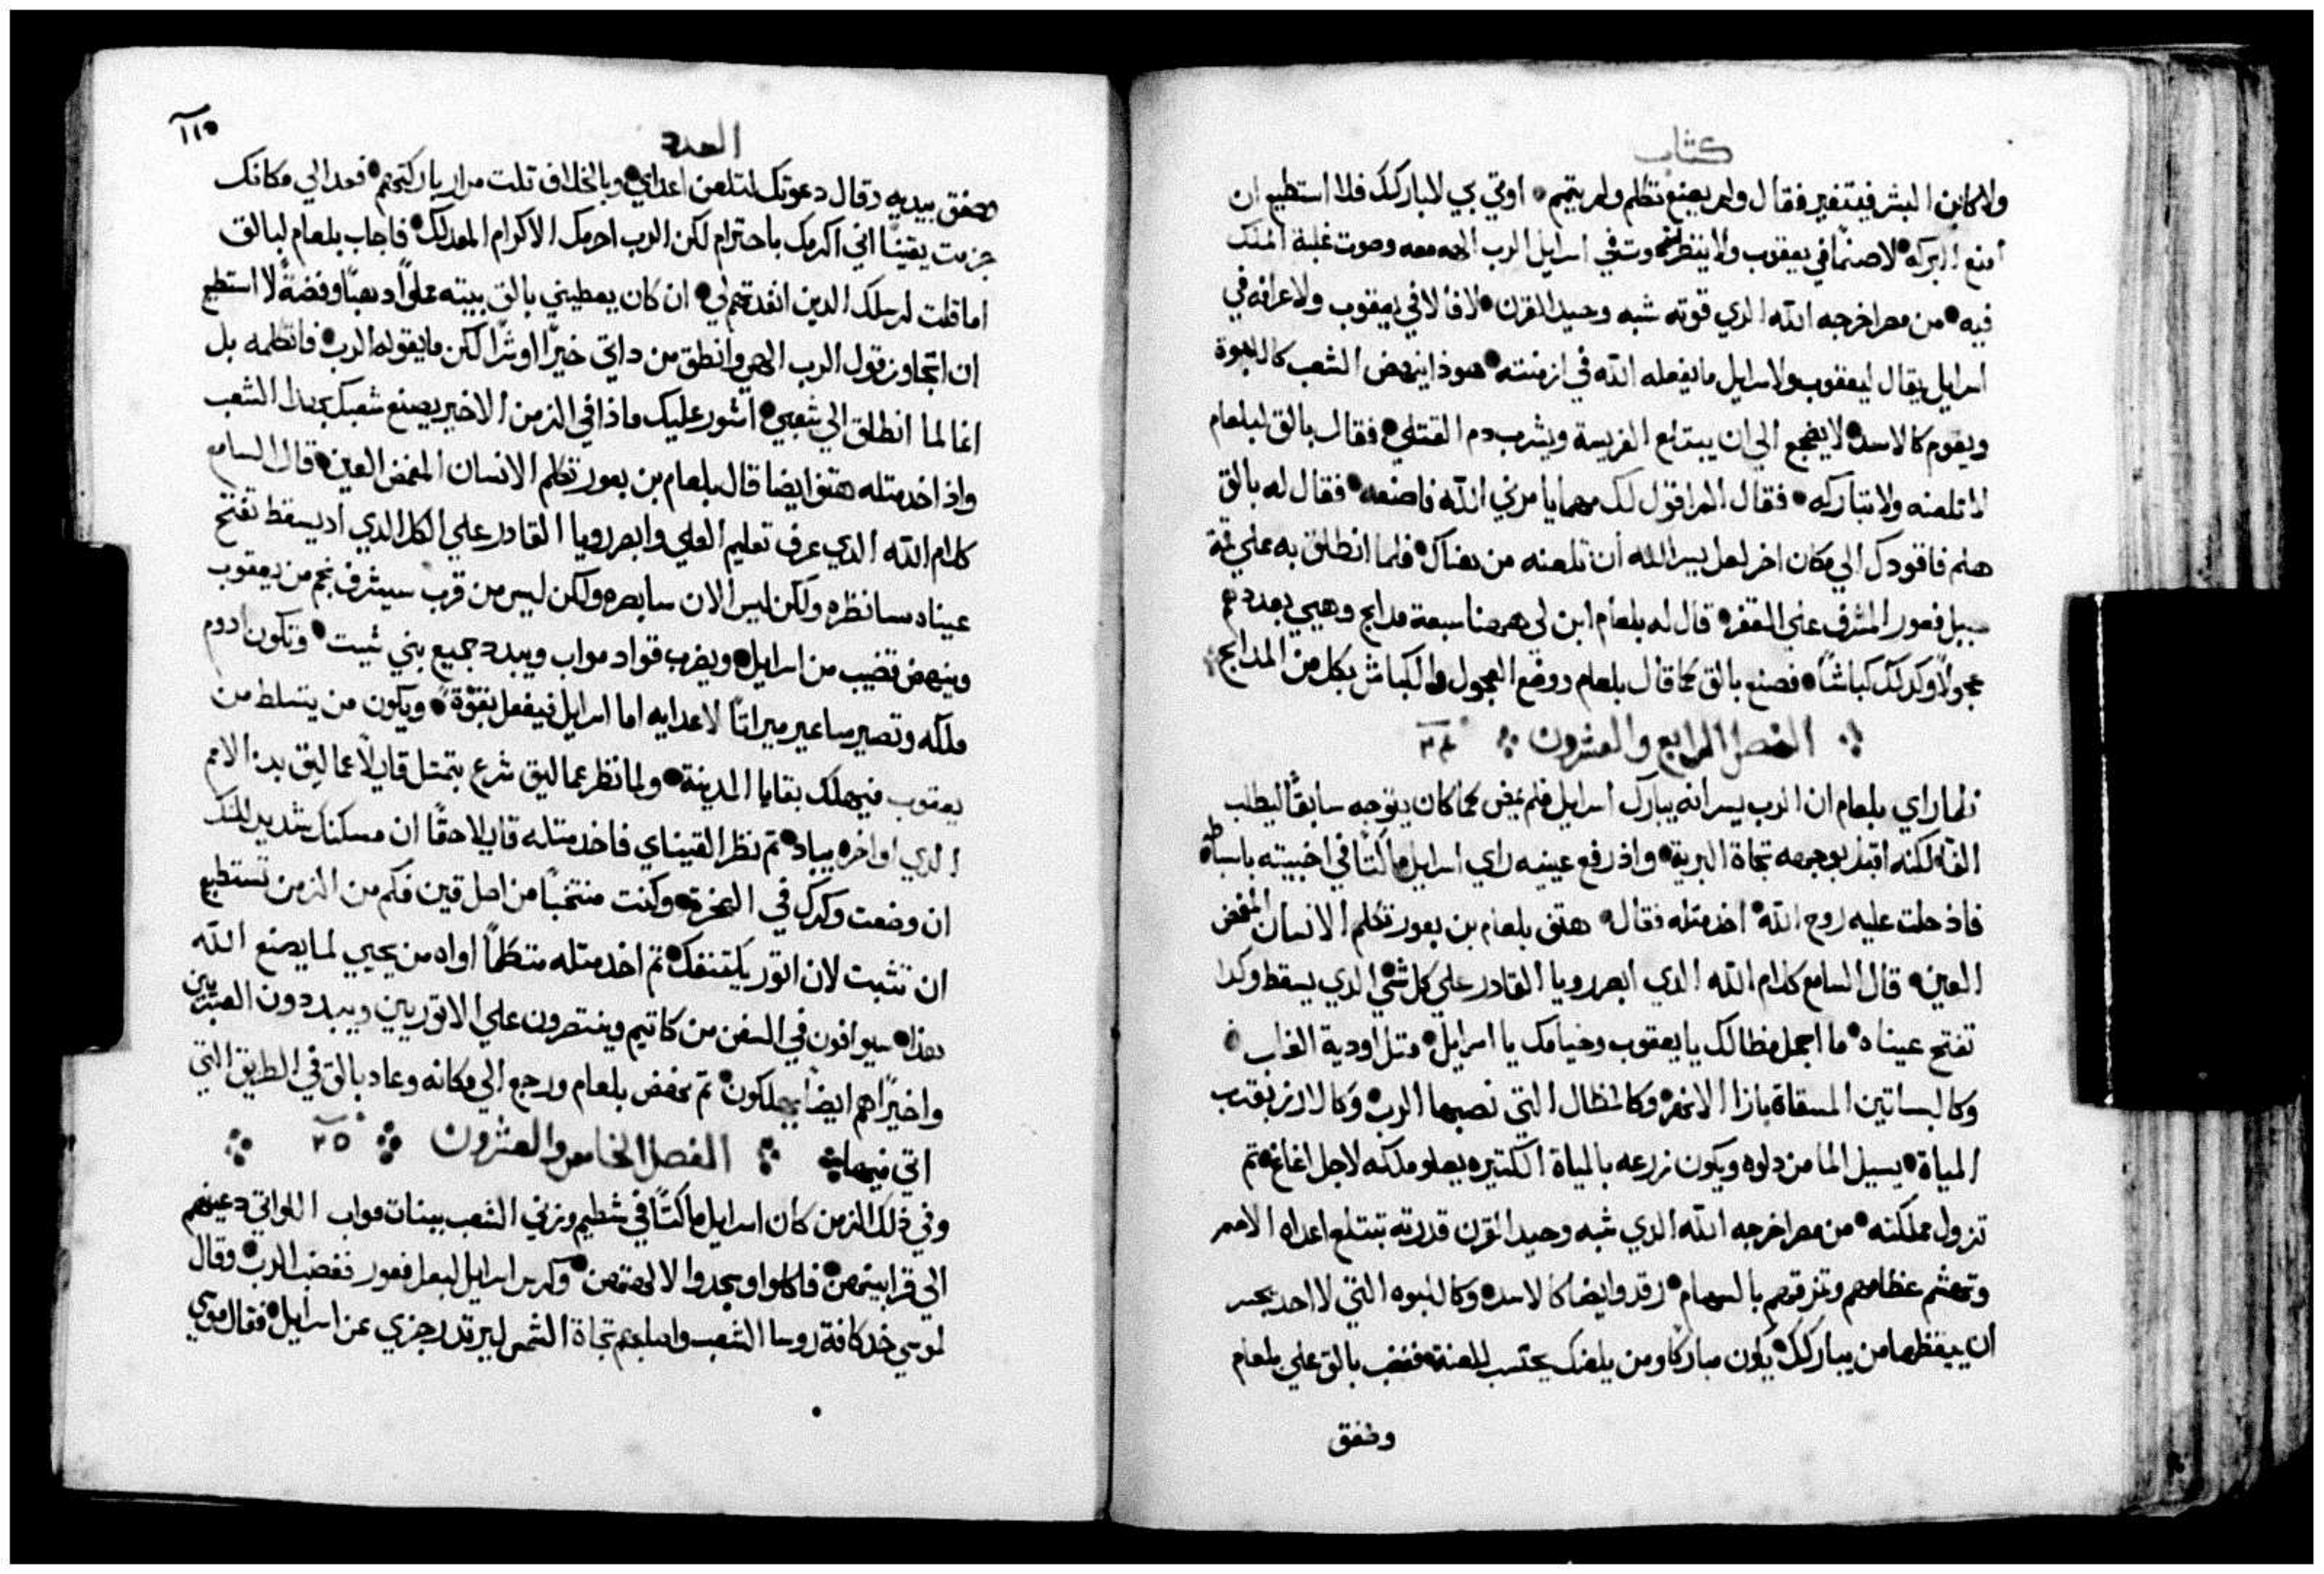 كتاب
ولا كابن البشر فيتغير فقال ولم يصنع تكلم ولم يتمم اوتي بي لابارك فلا استطيع ان
امنع البركه لا صنمًا في يعقوب ولا ينظر في اسرايل الرب الهه معه وصوت غلبة الملك
فيه من مصر اخرجه الله الدي قوته شبه وحيد القرن لا فالا في يعقوب ولا عرافه في
اسرايل يقال ليعقوب ولاسرايل ما يفعله الله في ازمنته هوذا ينهض الشعب كاللبوة
ويقوم كالاسد لا يضجع الي ان يبتلع الفريسة ويشرب دم القتلي فقال بالق لبلعام
لا تلعنه ولا تباركه فقال الم اقول لك مهما يامرني الله فاصنعه فقال له بالق
هلم فاقودك الي مكان اخر لعل يسر الله ان تلعنه من هناك فلما انطلق به علي قمة
جبل فعور المشرف علي القفر قال له بلعام ابن لي ههنا سبعة مدابح وهيي بعددهم
عجولاً وكدلك كباشًا فصنع بالق كما قال بلعام ووضع العجول والكباش بكل من المدابح
الفصل الرابع والعشرون ٢٤
فلما راي بلعام ان الرب يسر انه يبارك اسرايل فلم يمض كما كان يتوجه سابقًا ليطلب
الفال لكنه اقبل بوجهه تجاة البرية واذ رفع عينيه راي اسرايل ماكتًا في اخبيته باسباطه
فاذ حلت عليه روح الله اخد متله فقال هتف بلعام بن بعور تكلم الانسان المغمض
العين قال السامع كلام الله الدي ابصر رويا القادر علي كل شي الدي يسقط وكدا
تفتح عيناه ما اجمل مظالك يا يعقوب وخيامك يا اسرايل متل اودية الغاب
وكالبساتين المسقاة بازا الانهر وكالمظال التي نصبها الرب وكالارز بقرب
المياة يسيل الما من دلوه ويكون زرعه بالمياة الكتيره يعلو ملكه لاجل اغاغ تم
تزول مملكته من مصر اخرجه الله الدي شبه وحيد القرن قدرته تبتلع اعداه الامم
وتهشم عظامهم وتمزقهم بالسهام رقد وايضا كالاسد وكاللبوه التي لا احد يجسر
ان ييقظها من يبارك يكون مباركا ومن يلعنك يحتسب للعنة فغضب بالق علي بلعام
وصفق
العدد
١١٥
وصفق بيديه وقال دعوتك لتلعن اعداي وبالخلاف تلت مرار باركتهم فعد الي مكانك
جزمت يقينًا اني اكرمك باحترام لكن الرب احرمك الاكرام المعد لك فاجاب بلعام لبالق
اما قلت لرسلك الدين انفدتهم لي ان كان يعطيني بالق بيته مملوًا دهبًا وفضةً لا استطيع
ان اتجاوز قول الرب الهي وانطق من داتي خيرًا او شرًا لكن ما يقوله الرب فاتكلمه بل
انما لما انطلق الي شعبي اشور عليك ماذا في الزمن الاخير يصنع شعبك بهدا الشعب
واذ اخد متله هتف ايضا قال بلعام بن بعور تكلم الانسان المغمض العين قال السامع
كلام الله الدي عرف تعليم العلي وابصر رويا القادر علي الكل الدي اد يسقط تفتح
عيناه سانظره ولكن ليس الان سابصره ولكن ليس من قرب سيشرف نجم من يعقوب
وينهض قضيب من اسرايل ويضرب قواد مواب ويبدد جميع بني شيت وتكون ادوم
ملكه وتصير ساعير ميراتًا لاعدايه اما اسرايل فيفعل بقوّةً ويكون من يتسلط من
يعقوب فيهلك بقايا المدينة ولما نظر عماليق شرع يتمتل قايلاً عماليق بدء الامم
الدي اواخره يباد تم نظر القيناي فاخد متله قايلا حقًا ان مسكنك شديد لكنك
ان وضعت وكرك في الصخرة وكنت منتخبًا من اصل قين فكم من الزمن تستطيع
ان تتبت لان اتور يلقنفك تم اخد متله متكلمًا اواه من يحيي لما يصنع الله
هدا سيوافون في السفن من كاتيم وينتصرون علي الاتوريين ويبددون العبرانيين
واخيرًا هم ايضًا يهلكون تم نهض بلعام ورجع الي مكانه وعاد بالق في الطريق التي
اتي فيها الفصل الخامس والعشرون ٢٥
وفي ذلك الزمن كان اسرايل ماكتًا في شطيم وزني الشعب ببنات مواب اللواتي دعينهم
الي قرابينهن فاكلوا وسجدوا لالهتهن وكرس اسرايل لبعل فعور فغضب الرب وقال
لموسي خد كافة روسا الشعب واصلبهم تجاة الشمس ليرتد رجزي عن اسرايل فقال موسي